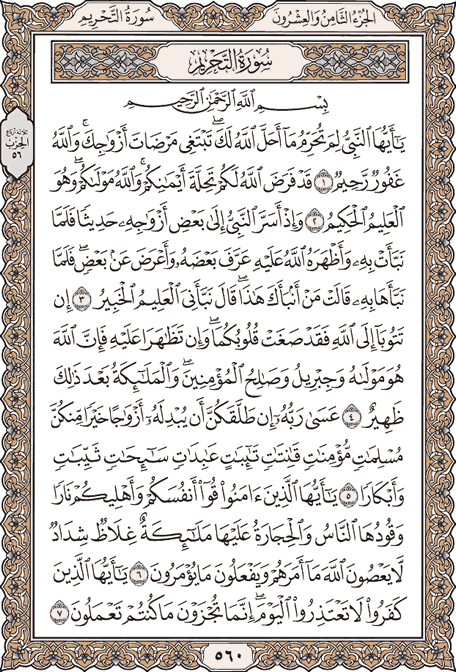 الجزء الثامن والعشرون
سورة التحريم
سُورَةُ التَّحْرِيمِ
بِسْمِ ٱللَّهِ ٱلرَّحْمَٰنِ ٱلرَّحِيمِ
يَٰٓأَيُّهَا ٱلنَّبِىُّ لِمَ تُحَرِّمُ مَآ أَحَلَّ ٱللَّهُ لَكَ ۖ تَبْتَغِى مَرْضَاتَ أَزْوَٰجِكَ ۚ وَٱللَّهُ
غَفُورٌ رَّحِيمٌ ١ قَدْ فَرَضَ ٱللَّهُ لَكُمْ تَحِلَّةَ أَيْمَٰنِكُمْ ۚ وَٱللَّهُ مَوْلَىٰكُمْ ۖ وَهُوَ
ٱلْعَلِيمُ ٱلْحَكِيمُ ٢ وَإِذْ أَسَرَّ ٱلنَّبِىُّ إِلَىٰ بَعْضِ أَزْوَٰجِهِۦ حَدِيثًا فَلَمَّا
نَبَّأَتْ بِهِۦ وَأَظْهَرَهُ ٱللَّهُ عَلَيْهِ عَرَّفَ بَعْضَهُۥ وَأَعْرَضَ عَنۢ بَعْضٍ ۖ فَلَمَّا
نَبَّأَهَا بِهِۦ قَالَتْ مَنْ أَنۢبَأَكَ هَٰذَا ۖ قَالَ نَبَّأَنِىَ ٱلْعَلِيمُ ٱلْخَبِيرُ ٣ إِن
تَتُوبَآ إِلَى ٱللَّهِ فَقَدْ صَغَتْ قُلُوبُكُمَا ۖ وَإِن تَظَٰهَرَا عَلَيْهِ فَإِنَّ ٱللَّهَ
هُوَ مَوْلَىٰهُ وَجِبْرِيلُ وَصَٰلِحُ ٱلْمُؤْمِنِينَ ۖ وَٱلْمَلَٰٓئِكَةُ بَعْدَ ذَٰلِكَ
ظَهِيرٌ ٤ عَسَىٰ رَبُّهُۥٓ إِن طَلَّقَكُنَّ أَن يُبْدِلَهُۥٓ أَزْوَٰجًا خَيْرًا مِّنكُنَّ
مُسْلِمَٰتٍ مُّؤْمِنَٰتٍ قَٰنِتَٰتٍ تَٰٓئِبَٰتٍ عَٰبِدَٰتٍ سَٰٓئِحَٰتٍ ثَيِّبَٰتٍ
وَأَبْكَارًا ٥ يَٰٓأَيُّهَا ٱلَّذِينَ ءَامَنُوا۟ قُوٓا۟ أَنفُسَكُمْ وَأَهْلِيكُمْ نَارًا
وَقُودُهَا ٱلنَّاسُ وَٱلْحِجَارَةُ عَلَيْهَا مَلَٰٓئِكَةٌ غِلَاظٌ شِدَادٌ
لَّا يَعْصُونَ ٱللَّهَ مَآ أَمَرَهُمْ وَيَفْعَلُونَ مَا يُؤْمَرُونَ ٦ يَٰٓأَيُّهَا ٱلَّذِينَ
كَفَرُوا۟ لَا تَعْتَذِرُوا۟ ٱلْيَوْمَ ۖ إِنَّمَا تُجْزَوْنَ مَا كُنتُمْ تَعْمَلُونَ ٧
الحزب
٥٦
٥٦٠